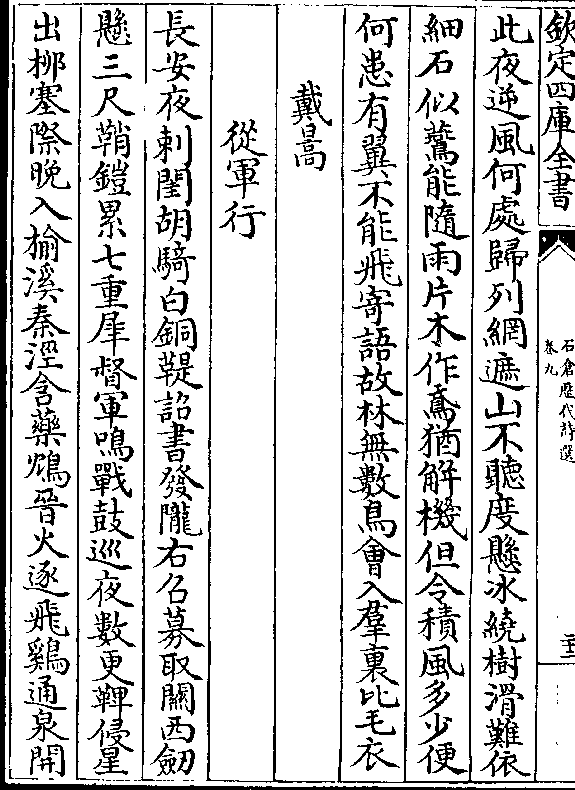 欽定四庫全書
石倉歷代詩選
卷九
二十二
此夜逆風何處歸列網遮山不聽度懸冰繞樹滑難依
細石似鷰能隨雨片木作鳶猶解機但令積風多少便
何患有翼不能飛寄語故林無數鳥會入羣裏比毛衣
戴暠
從軍行
長安夜刺閨胡騎白銅鞮詔書發隴右召募取關西劒
懸三尺鞘鎧累七重犀督軍鳴戰鼓巡夜數更鞞侵星
出栁塞際晩入榆溪秦涇含藥鴆晉火逐飛鷄通泉開